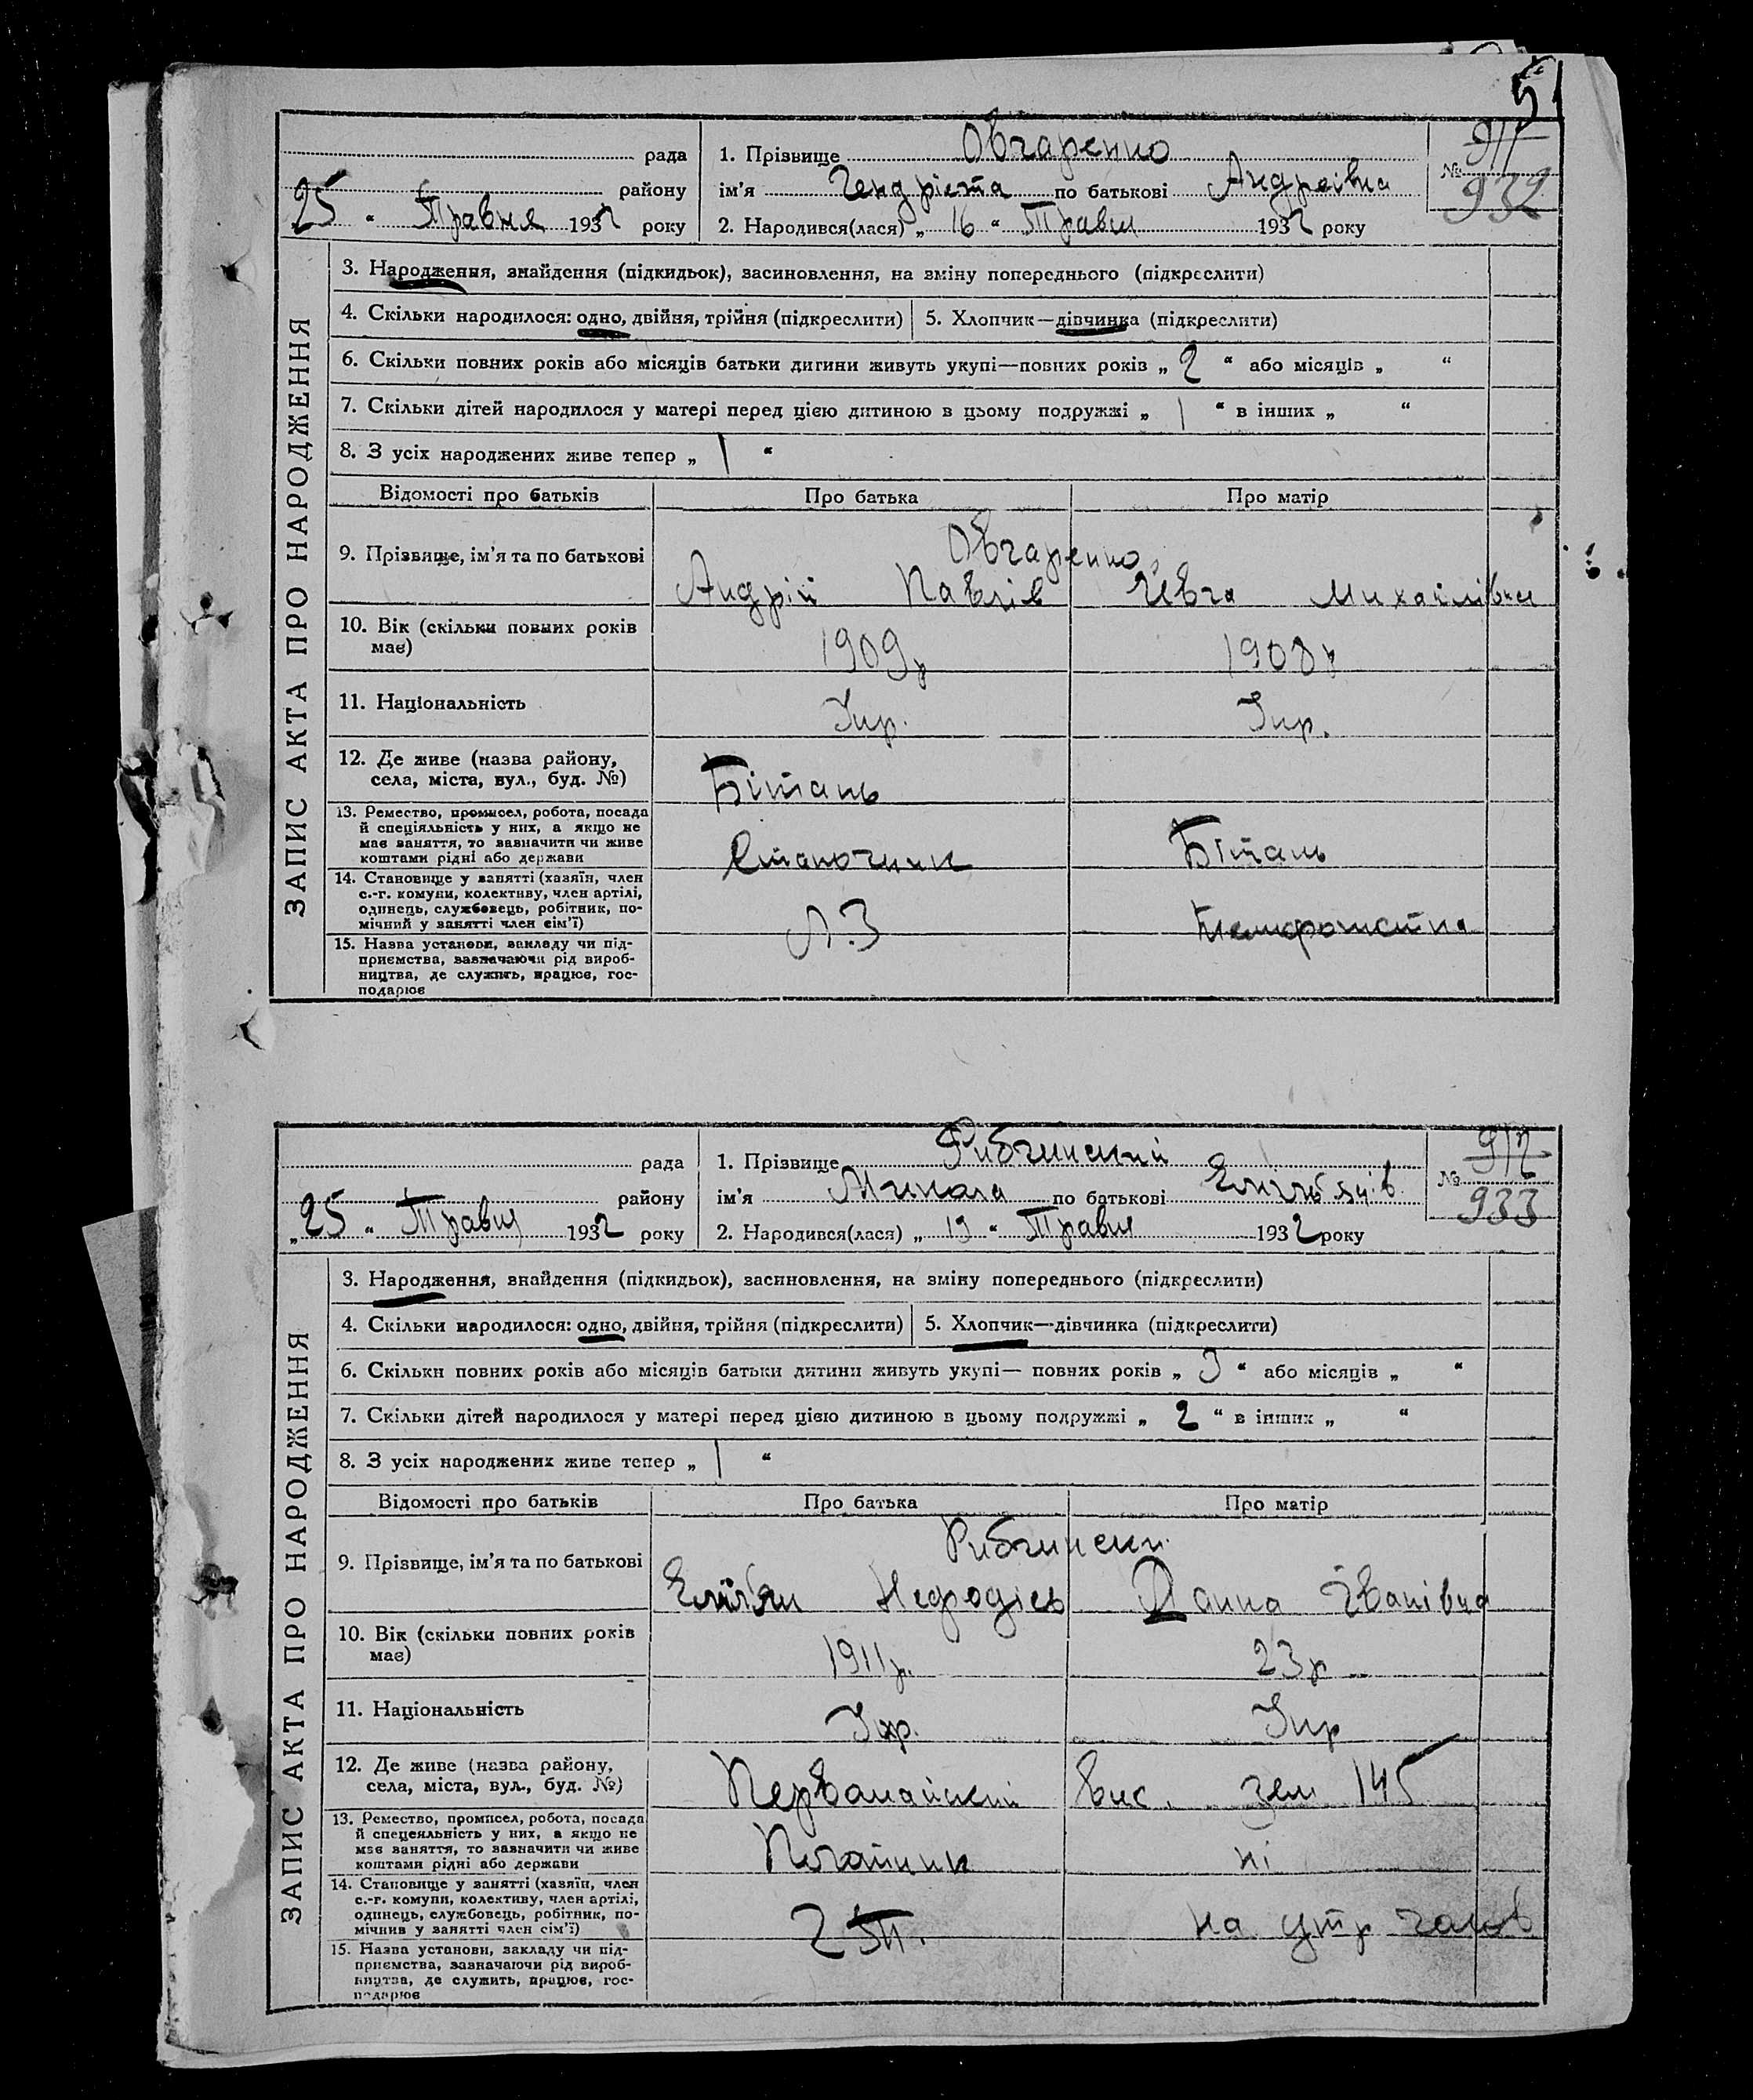 51
рада
району
25 " Травня 1932 року
1. Прізвище Овчаренко
ім'я Гендрієта по батькові Андреівна
2. Народився(лася) „ 16 " Травня 1932 року
№ 911
932
ЗАПИС АКТА ПРО НАРОДЖЕННЯ
3. Народження, знайдення (підкидьок), засиновлення, на зміну попереднього (підкреслити)
4. Скільки народилося: одно, двійня, трійня (підкреслити)
5. Хлопчик—дівчинка (підкреслити)
6. Скільки повних років або місяців батьки дитини живуть укупі—повних років „ 2 " або місяців „ "
7. Скільки дітей народилося у матері перед цією дитиною в цьому подружжі „ 1 " в інших „ "
8. З усіх народжених живе тепер „ 1 "
Відомості про батьків
Про батька
Про матір
9. Прізвище, ім'я та по батькові
Овчаренко
Андрій Павлів
Михайлівна
10. Вік (скільки повних років
має)
1909р
1908р
11. Національність
Укр.
Укр.
12. Де живе (назва району,
села, міста, вул., буд. №)
Бітань
13. Ремество, промисел, робота, посада
й спеціяльність у них, а якщо не
має заняття, то зазначити чи живе
коштами рідні або держави
Станочник
Бітань
14. Становище у занятті (хазяїн, член
с.-г. комуни, колективу, член артілі,
одинець, службовець, робітник, по-
мічний у занятті член сім'ї)
Л.З
15. Назва установи, закладу чи під-
приємства, зазначаючи рід вироб-
ництва, де служить, працює, гос-
подарює
рада
району
„ 25 " Травня 1932 року
1. Прізвище Рибчинский
ім'я Микола по батькові
2. Народився(лася) „ 19 " Травня 1932 року
№ 912
933
ЗАПИС АКТА ПРО НАРОДЖЕННЯ
3. Народження, знайдення (підкидьок), засиновлення, на зміну попереднього (підкреслити)
4. Скільки народилося: одно, двійня, трійня (підкреслити)
5. Хлопчик—дівчинка (підкреслити)
6. Скільки повних років або місяців батьки дитини живуть укупі— повних років „ 3 " або місяців „ "
7. Скільки дітей народилося у матері перед цією дитиною в цьому подружжі „ 2 " в інших „ "
8. З усіх народжених живе тепер „ 1 "
Відомості про батьків
Про батька
Про матір
9. Прізвище, ім'я та по батькові
Рибчински
Ганна Іванівна
10. Вік (скільки повних років
має)
1911р.
23р
11. Національність
Укр.
Укр
12. Де живе (назва району,
села, міста, вул., буд. №)
Первомайский вис. зем 145
13. Ремество, промисел, робота, посада
й спецеяльність у них, а якщо не
має заняття, то зазначити чи живе
коштами рідні або держави
ні
14. Становище у занятті (хазяїн, член
с.-г. комуни, колективу, член артілі,
одинець, службовець, робітник, по-
мічнив у занятті член сім'ї)
на утр
15. Назва установи, закладу чи під-
приємства, зазначаючи рід вироб-
ництва, де служить, працює, гос-
подарює